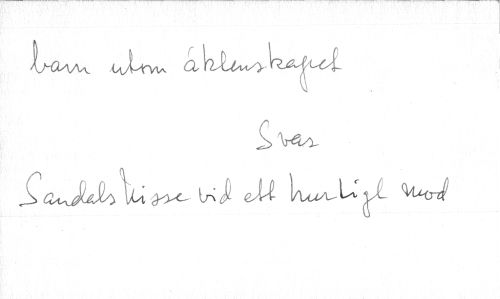 barn utom äktenskapet
Svar
Sandalskisse vid ett hurtigt mod